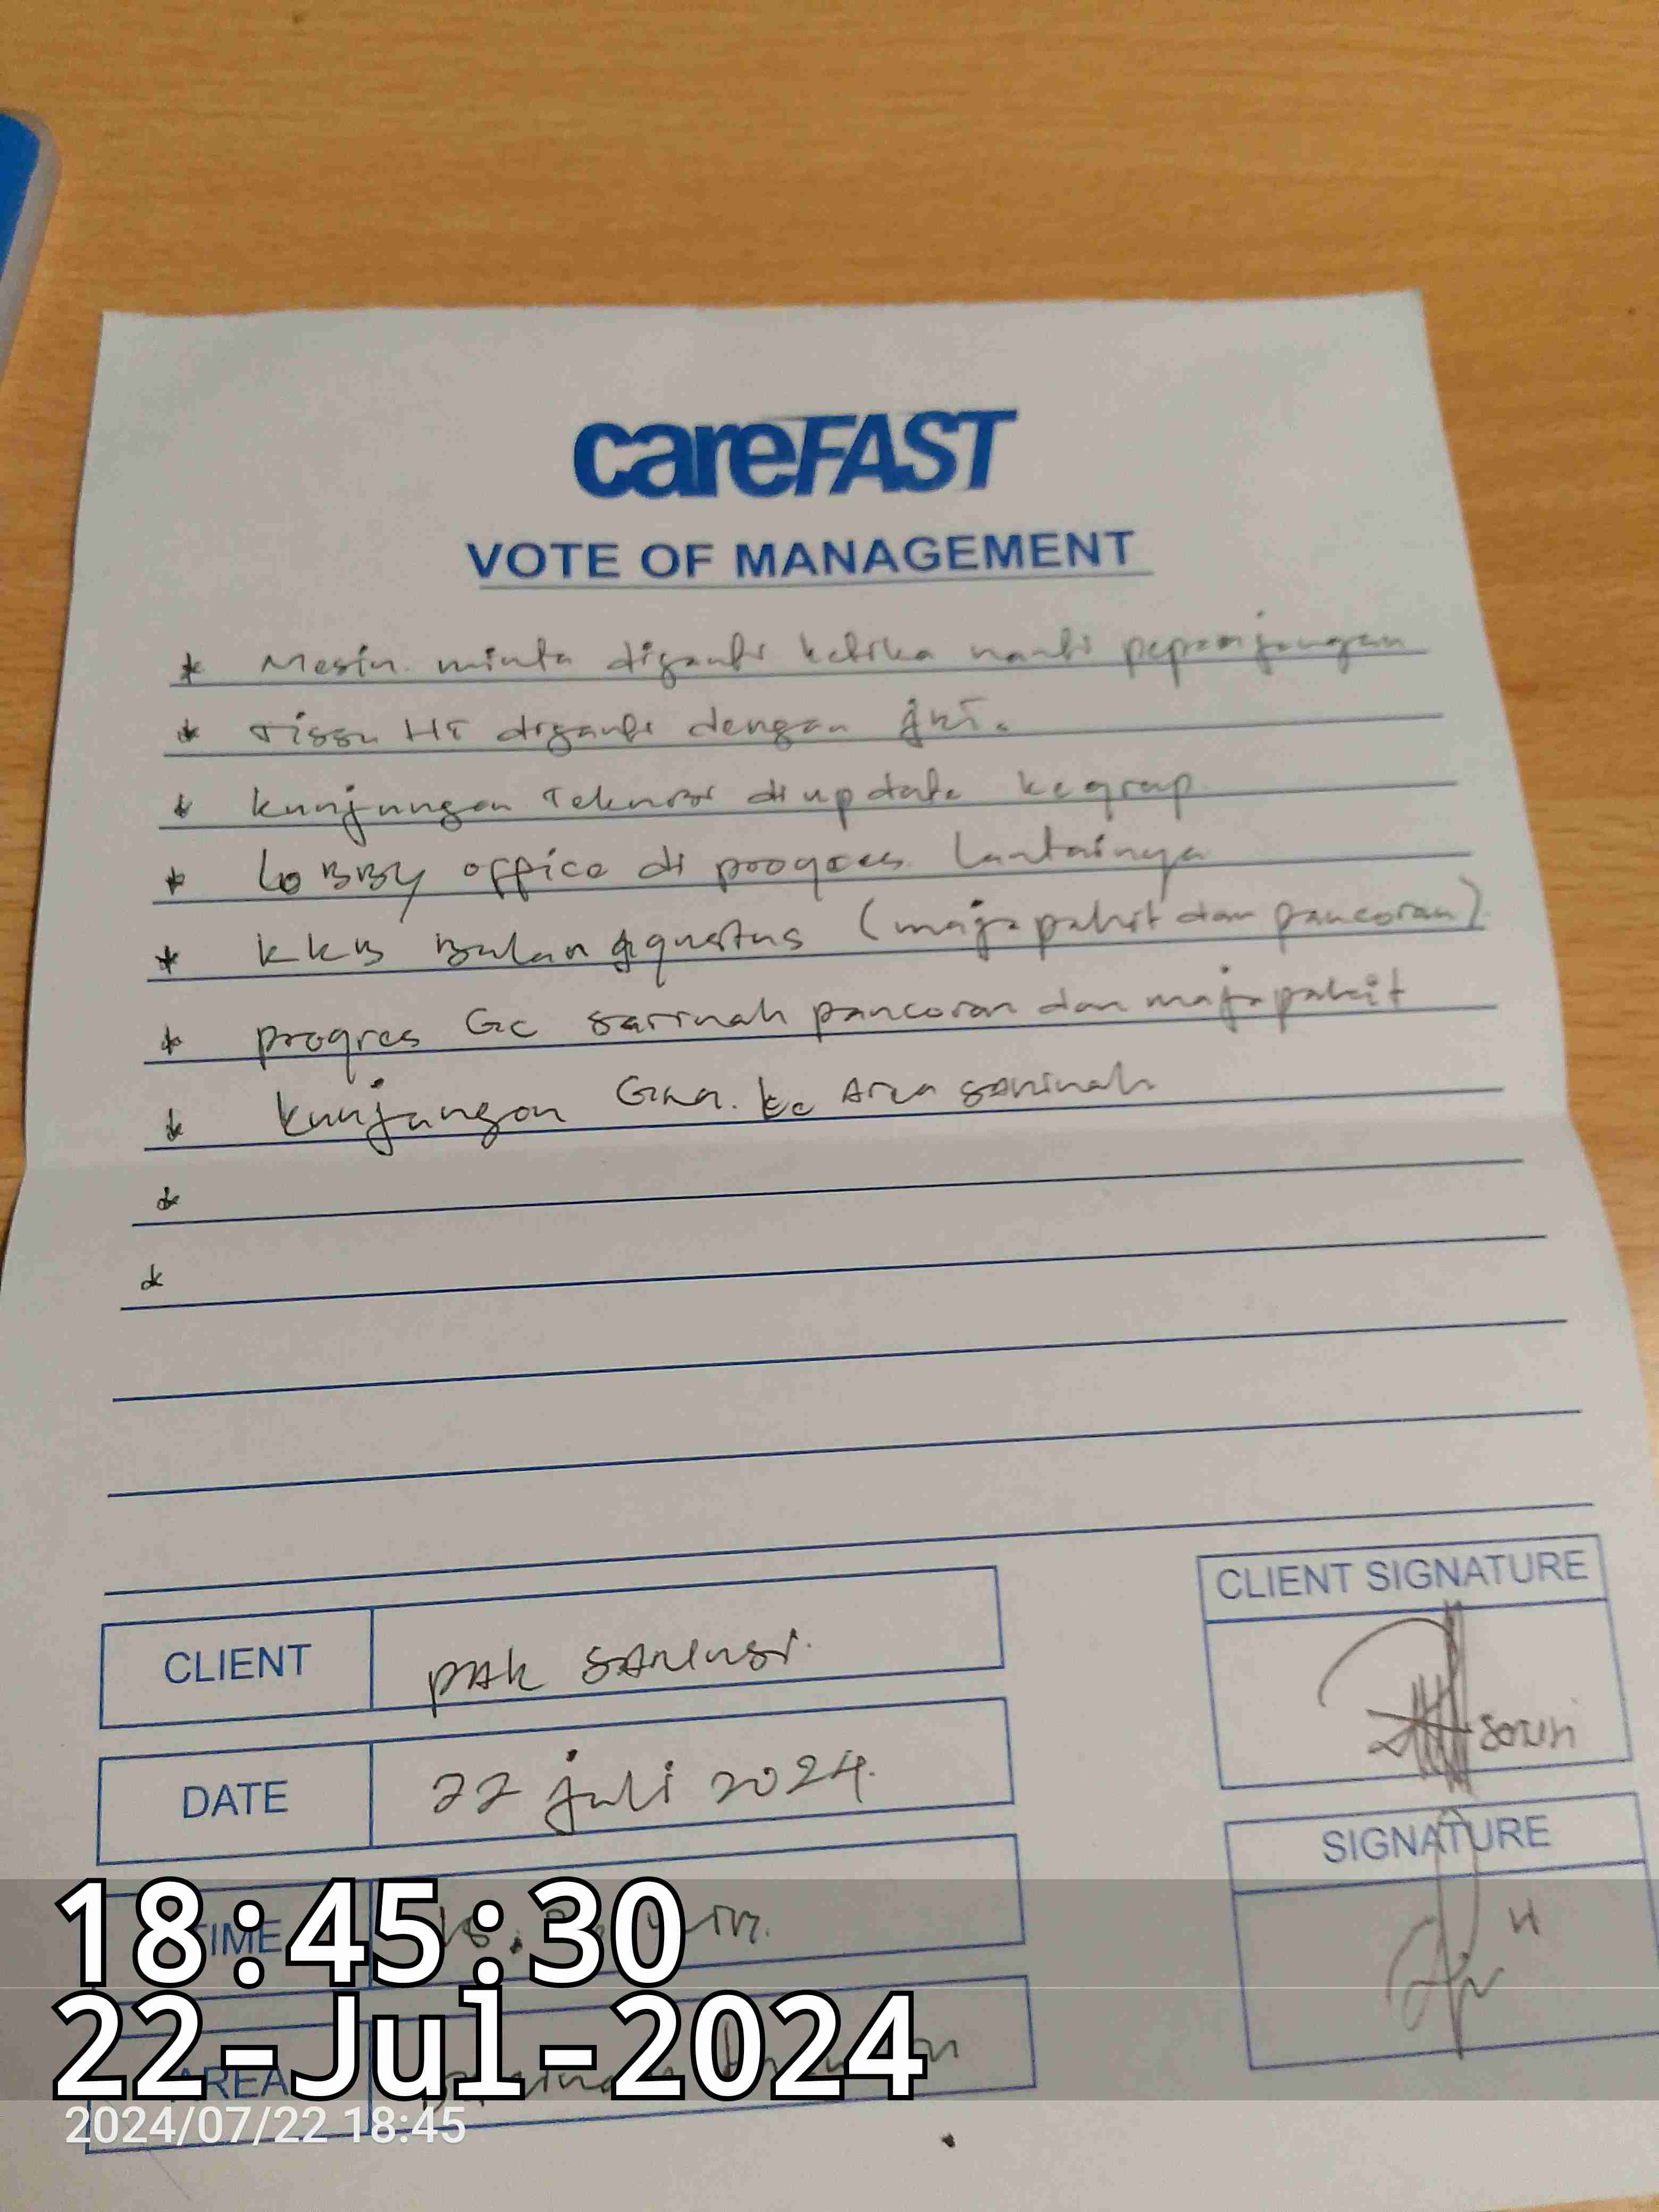 careFAST
VOTE OF MANAGEMENT
* Mesin minta diganti ketika nanti
* Tissu HT diganti dengan jkt.
* kunjungan Teknisi di update ke grup
* LoBBY office di progres lantainya
* KKB Bulan Agustus (majapahit dan pancoran)
* progres GC sarinah pancoran dan majapahit
* kunjungan ke Area sarinah
*
*
CLIENT PAK SANUSI.
DATE 22 juli 2024.
TIME
AREA
CLIENT SIGNATURE
SIGNATURE
18:45:30
22-Jul-2024
2024/07/22 18:45